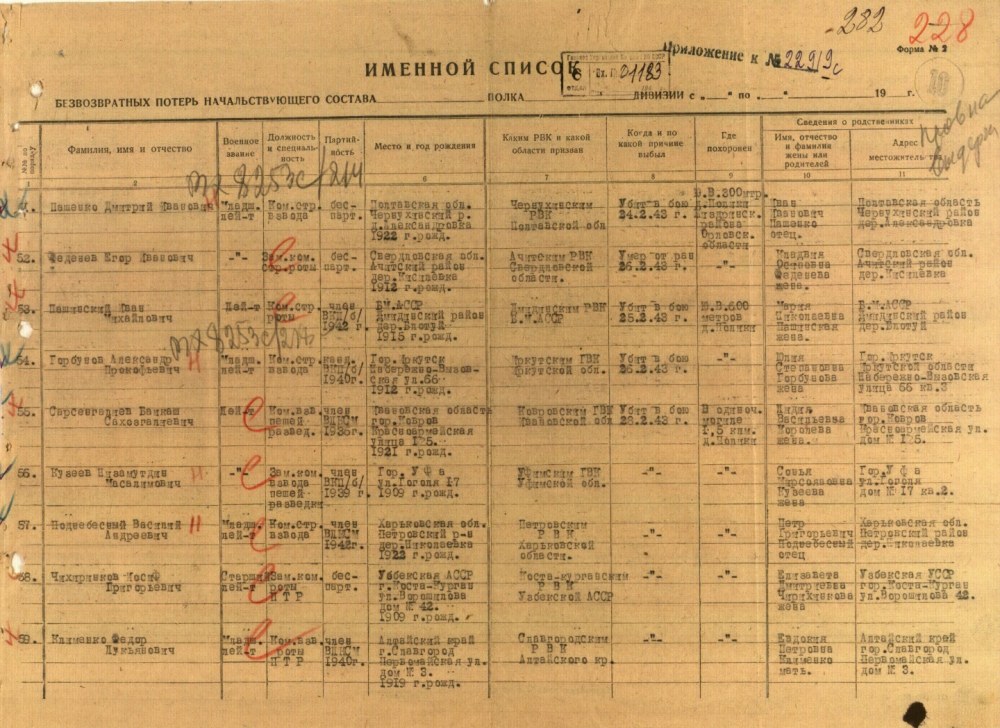 282 228
Приложение к № 2299/9с
Форма № 2
ИМЕННОЙ СПИСОК
01183
10
БЕЗВОЗВРАТНЫХ ПОТЕРЬ НАЧАЛЬСТВУЮЩЕГО СОСТАВА ПОЛКА ДИВИЗИИ с „ “ по „ “ 19 г.
№№ по порядку
Фамилия, имя и отчество
Военное звание
Должность и специальность
Партийность
Место и год рождения
Каким РВК и какой области призван
Когда и по какой причине выбыл
Где похоронен
Сведения о родственниках
Имя, отчество и фамилия жены или родителей
Адрес
местожительства
2 6 7 8 9 10 11
Пащенко Дмитрий Иванович Младш. лей-т Ком.стр. взвода бес- парт. Полтавская обл. Чернухинский р. д.Александровка 1922 г.рожд. Чернухинским РВК Полтавской обл Убит в бою 24.2.43 г. Ю.В.300мтр. Орловск. области Иван Иванович Пащенко отец. Полтавская область Чернухинский район дер.Александровка
52. Феденев Егор Иванович -"- Зам.ком. роты бес- парт. Свердловская обл. Ачитский район 1912 г.рожд. Ачитским РВК Свердловской области. Умер от ран 26.2.43 г. -"- Клавдия Феденева жена. Свердловская обл. Ачитский район
53. Пашинский Иван Михайлович Лей-т Ком.стр. роты член ВКП/б/ 1942 г. Б.М.АССР район 1915 г.рожд. РВК Б.М.АССР Убит в бою 25.2.43 г. Ю.В.600 метров Мария Николаевна Пашинская жена. Б.М.АССР район
54. Горбунов Александр Прокофьевич Младш. лей-т Ком.стр. взвода ВКП/б/ 1940г. Гор.Иркутск ул.66 1912 г.рожд. Иркутским ГВК Иркутской обл. Убит в бою 26.2.43 г. -"- Юлия Степановна Горбунова жена Гор.Иркутск Иркутской области улица 66 кв.3
55. Лей-т Ком.взв. пешей развед. член ВЛКСМ Ивановская область гор.Ковров Красноармейская улица 125. 1921 г.рожд. Ковровским ГВК Ивановской обл Убит в бою 28.2.43 г. В одиноч. могиле 1,5 клм. Лидия Васильевна Королева жена. Ивановская область гор.Ковров Красноармейская ул. дом № 125.
56. Кузеев -"- Зам.ком. взвода пешей разведки член ВКП/б/ 1939 г. Гор. Уфа ул.Гоголя 17 1909 г.рожд. Уфимским ГВК Уфимской обл. -"- -"- Кузеева жена Гор.Уфа ул.Гоголя дом № 17 кв.2.
57. Поднебесный Василий Андреевич Младш. лей-т Ком.стр. взвода член ВЛКСМ 1942г. Харьковская обл. Петровский р-н дер.Николаевка 1922 г.рожд. Петровским РВК Харьковской области. -"- -"- Петр Григорьевич Поднебесный отец Харьковская обл. Петровский район дер.Николаевка
58. Григорьевич Старший лей-т Зам.ком. роты ПТР бес- парт. Узбекская АССР г.Коста-Курган ул.Ворошилова дом № 42. 1909 г.рожд. Коста-курганским РВК Узбекской АССР -"- -"- Елизавета Дмитриевна жена Узбекская УССР гор.Коста-Курган ул.Ворошилова 42.
59. Клименко Федор Лукьянович Младш. лей-т Ком.взв. роты ПТР член ВЛКСМ 1940г. Алтайский край г.Славгород Первомайская ул. дом № 3. 1919 г.рожд. Славгородским РВК Алтайского кр. -"- -"- Евдокия Петровна Клименко мать. Алтайский край гор.Славгород Первомайская ул. дом № 3.